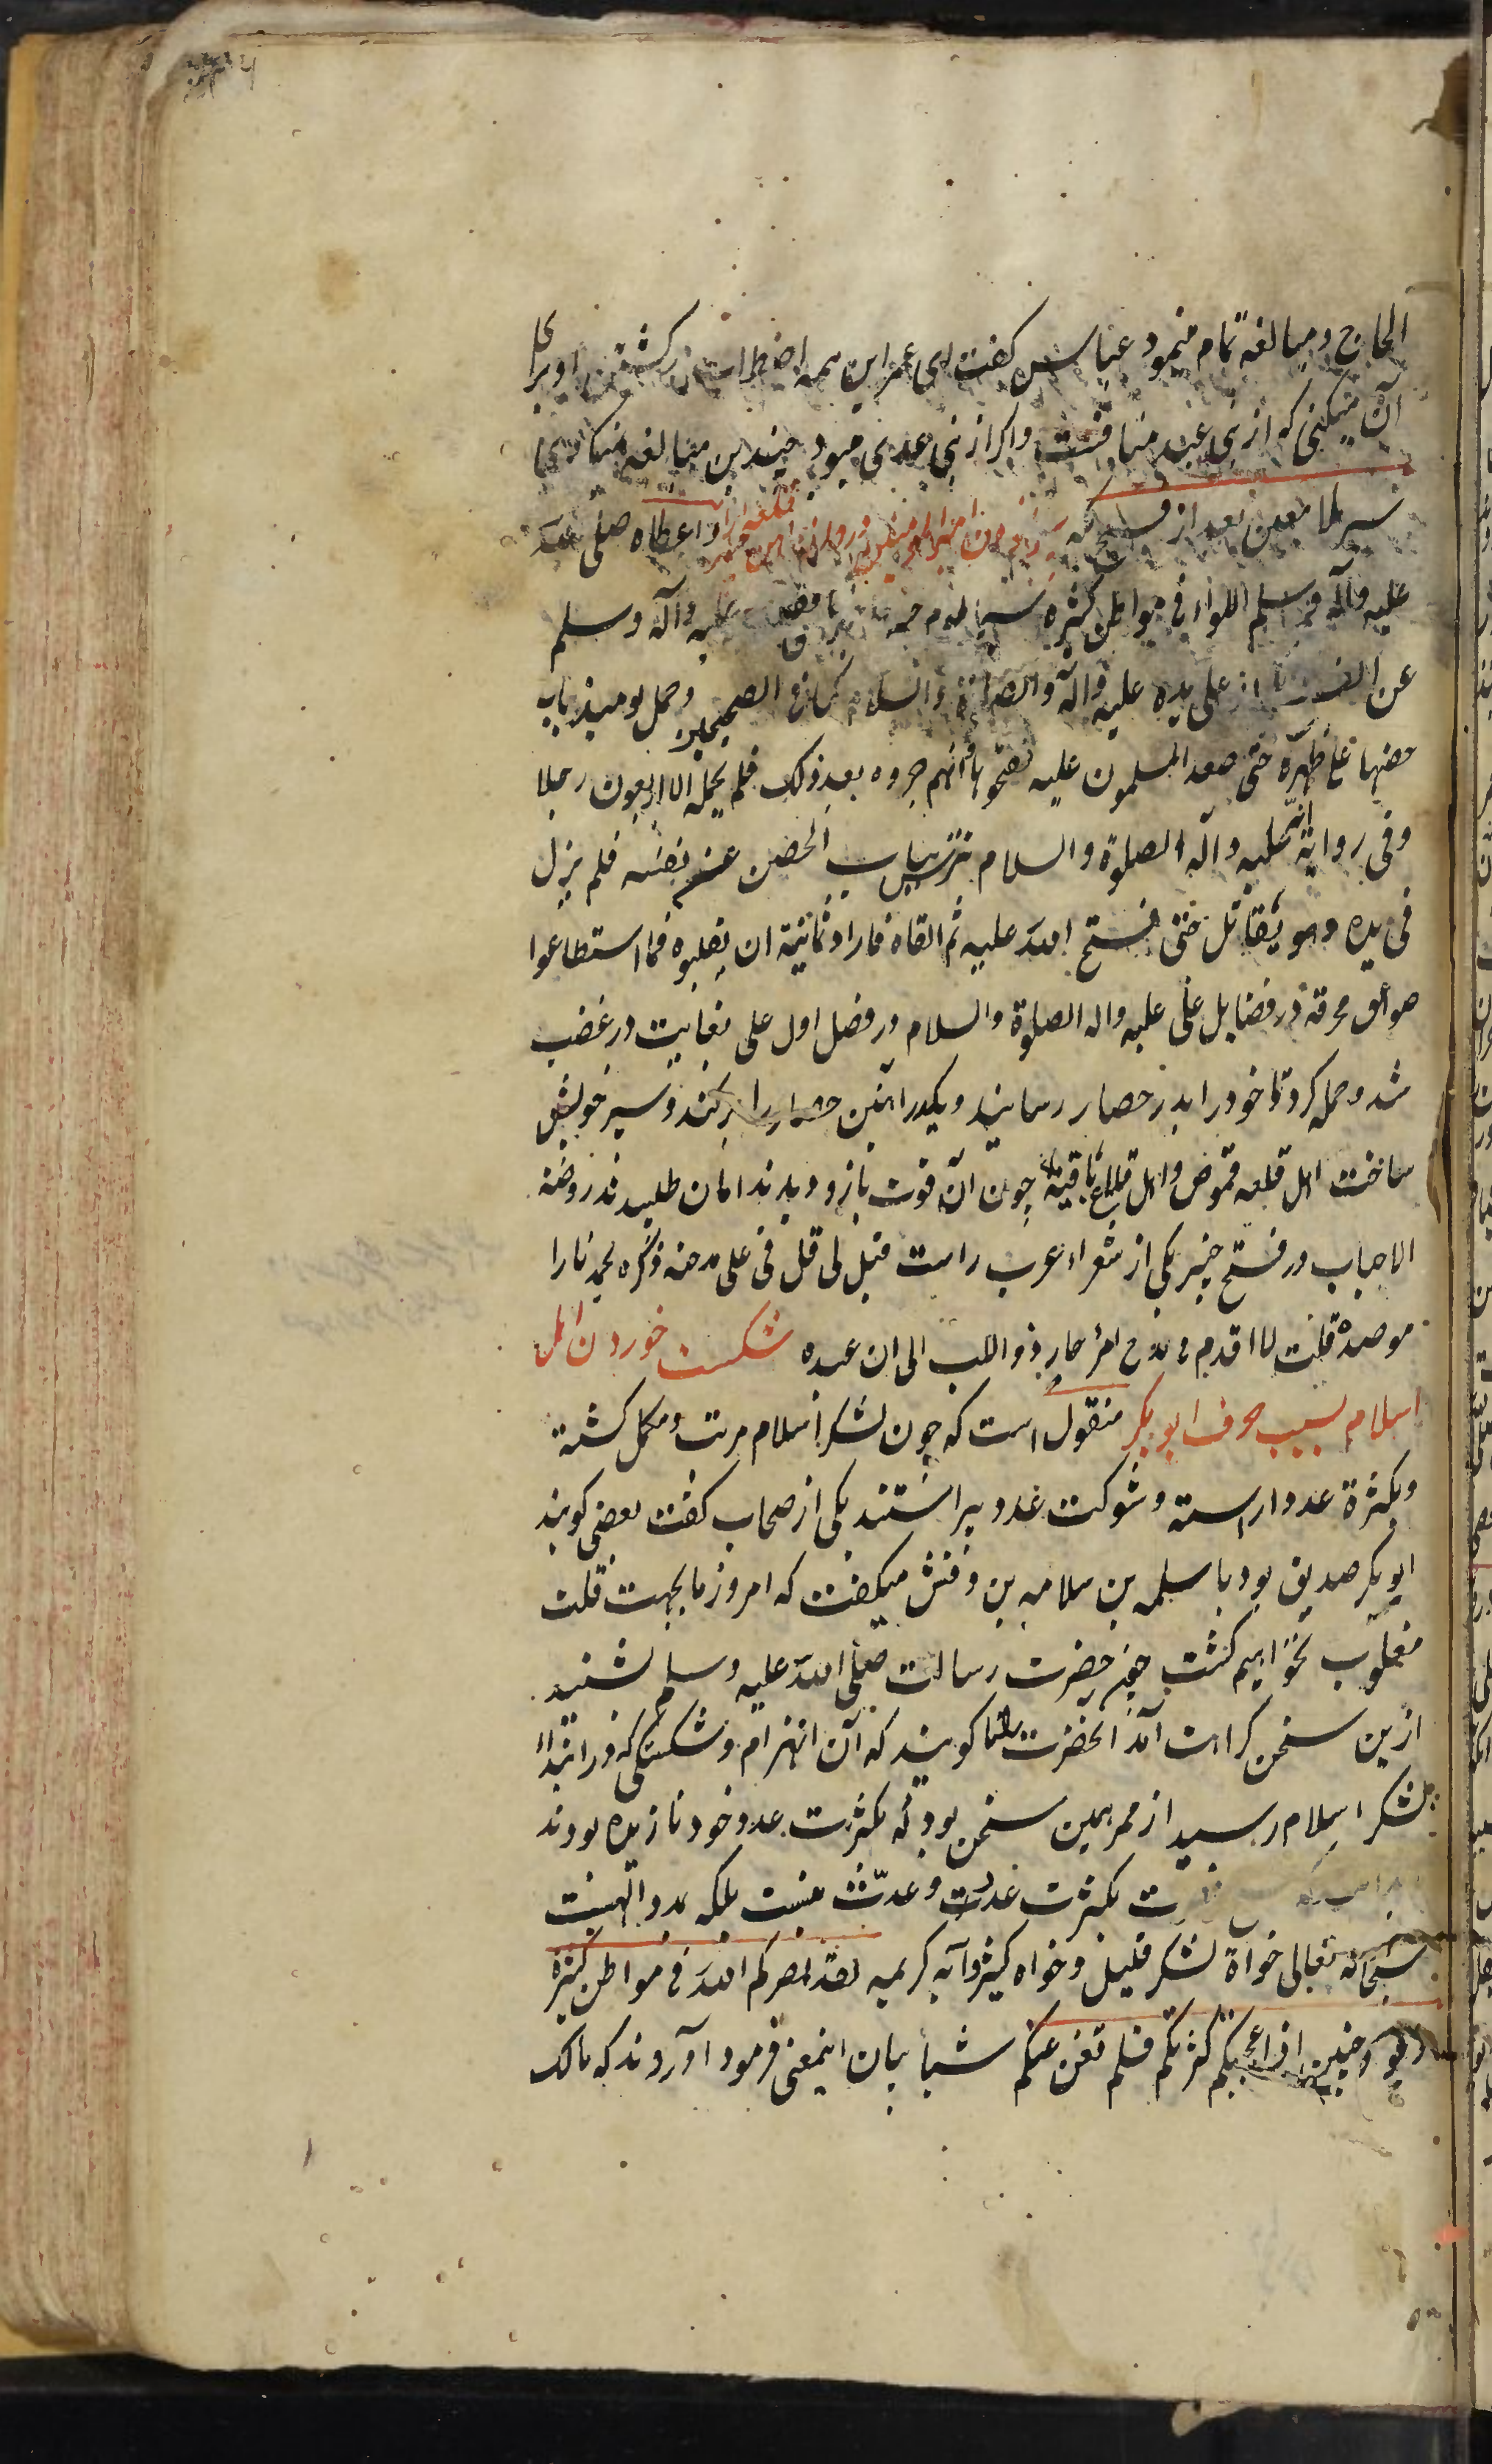 الحاح ومبالغه تمام مینمود عباس کفت ای عمر این همه اضطراب در کشتن او برای
آن میکنی که از بنی عبد منافست واکر از بنی عدی میبود چندین مبالغه نمیکردی
سیر ملا معین بعد از فتح مکه واعطاه صلی الله
علیه وآله وسلم اللواء فی مواطن کثیره سیما یوم علیه وآله وسلم
عن علی یده علیه وآله والصلوة والسلام کما فی الصحیحین وحمل یومیذ باب
حصنها علی ظهره حتی صعد المسلمون علیه ففتحوها وانهم جروه بعد ذلک فلم یحمله الا اربعون رجلا
وفی روایة انه علیه وآله الصلوة والسلام تترس بباب الحصن عن نفسه فلم یزل
فی یده وهو یقاتل حتی فتح الله علیه ثم القاه فاراد ثمانیة ان یقلبوه فما استطاعوا
صواعق محرقه در فضایل علی علیه واله الصلوة والسلام در فصل اول علی بغایت در غضب
شد وحمله کرد تا خود را بدر حصار رسانید ویکدر آهنین حصار را برکند وسپر خویش
ساخت اهل قلعه قموص واهل قلاع باقیه چون آن قوت بازو دیدند امان طلبیدند روضة
الاحباب در فتح خیبر یکی از شعراء عرب راست قیل لی قل فی علی مدحة ذکره یخمد نارا
موصده قلت لا اقدم فی مدح امرء حار ذو اللب الی ان عبده شکست خوردن اهل
اسلام بسبب حرف ابو بکر منقول است که چون لشکر اسلام مرتب ومکمل کشته
وبکثرة عدد اراسته وشوکت عدد پیراستند یکی از صحاب کفت بعضی کویند
ابو بکر صدیق بود با سلمه بن سلامه بن وقش میکفت که امروز ما بجهت قلت
مغلوب نخواهیم کشت چون حضرت رسالت صلی الله علیه وسلم شنید
ازین سخن کراهت آمد الحضرت کویند که آن انهزام وشکستکی که در ابتدا
بلشکر اسلام رسید از ممر همین سخن بود که بکثرت عدد خود نازیده بودند
بکثرت عدد وعدّت نیست بلکه بمدد الهیست
سبحانه تعالی خواه لشکر قلیل وخواه کثیر وآیه کریمه لقد نصرکم الله فی مواطن کثیرة
ویوم حنین اذ اعجبتکم کثرتکم فلم تغن عنکم شیأ بیان اینمعنی فرمود آورده‌اند که مالک